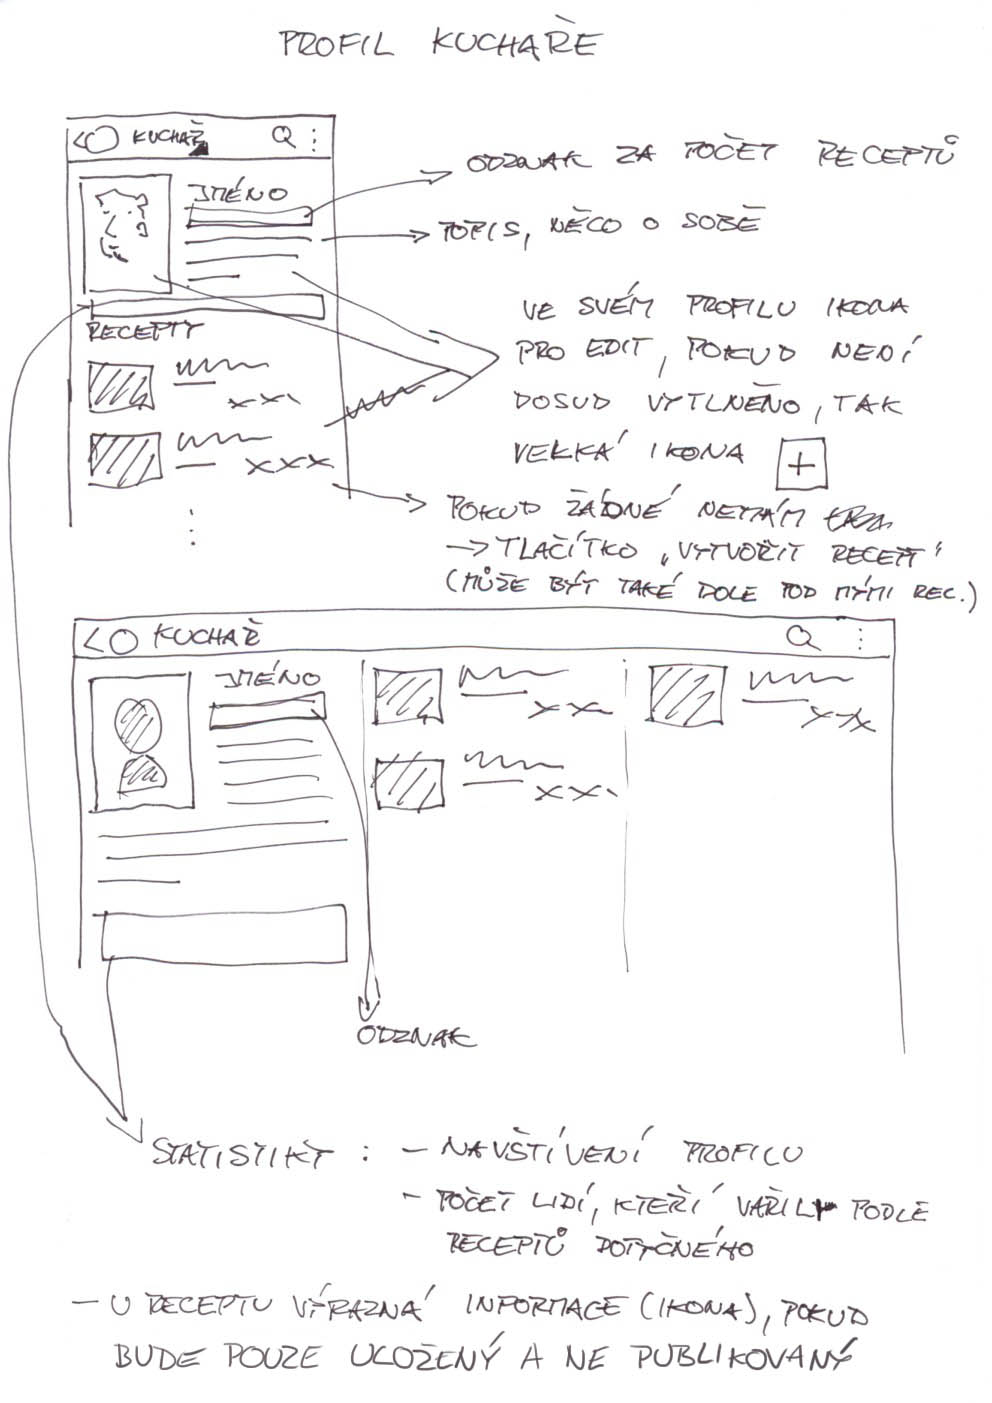 PROFIL KUCHAŘE
KUCHAŘ
JMÉNO
RECEPTY
ODZNAK ZA POČET RECEPTŮ
POPIS, NĚCO O SOBĚ
VE SVÉM PROFILU IKONA
PRO EDIT, POKUD NENÍ
DOSUD VYPLNĚNO, TAK
VELKÁ IKONA +
POKUD ŽÁDNÉ NEMÁM
→ TLAČÍTKO „VYTVOŘIT RECEPT"
(MŮŽE BÝT TAKÉ DOLE POD MÝMI REC.)
KUCHAŘ
JMÉNO
ODZNAK
STATISTIKY : – NAVŠTÍVENÍ PROFILU
– POČET LIDÍ, KTEŘÍ VAŘILI PODLE
RECEPTŮ DOTYČNÉHO
– U RECEPTU VÝRAZNÁ INFORMACE (IKONA), POKUD
BUDE POUZE ULOŽENÝ A NE PUBLIKOVANÝ